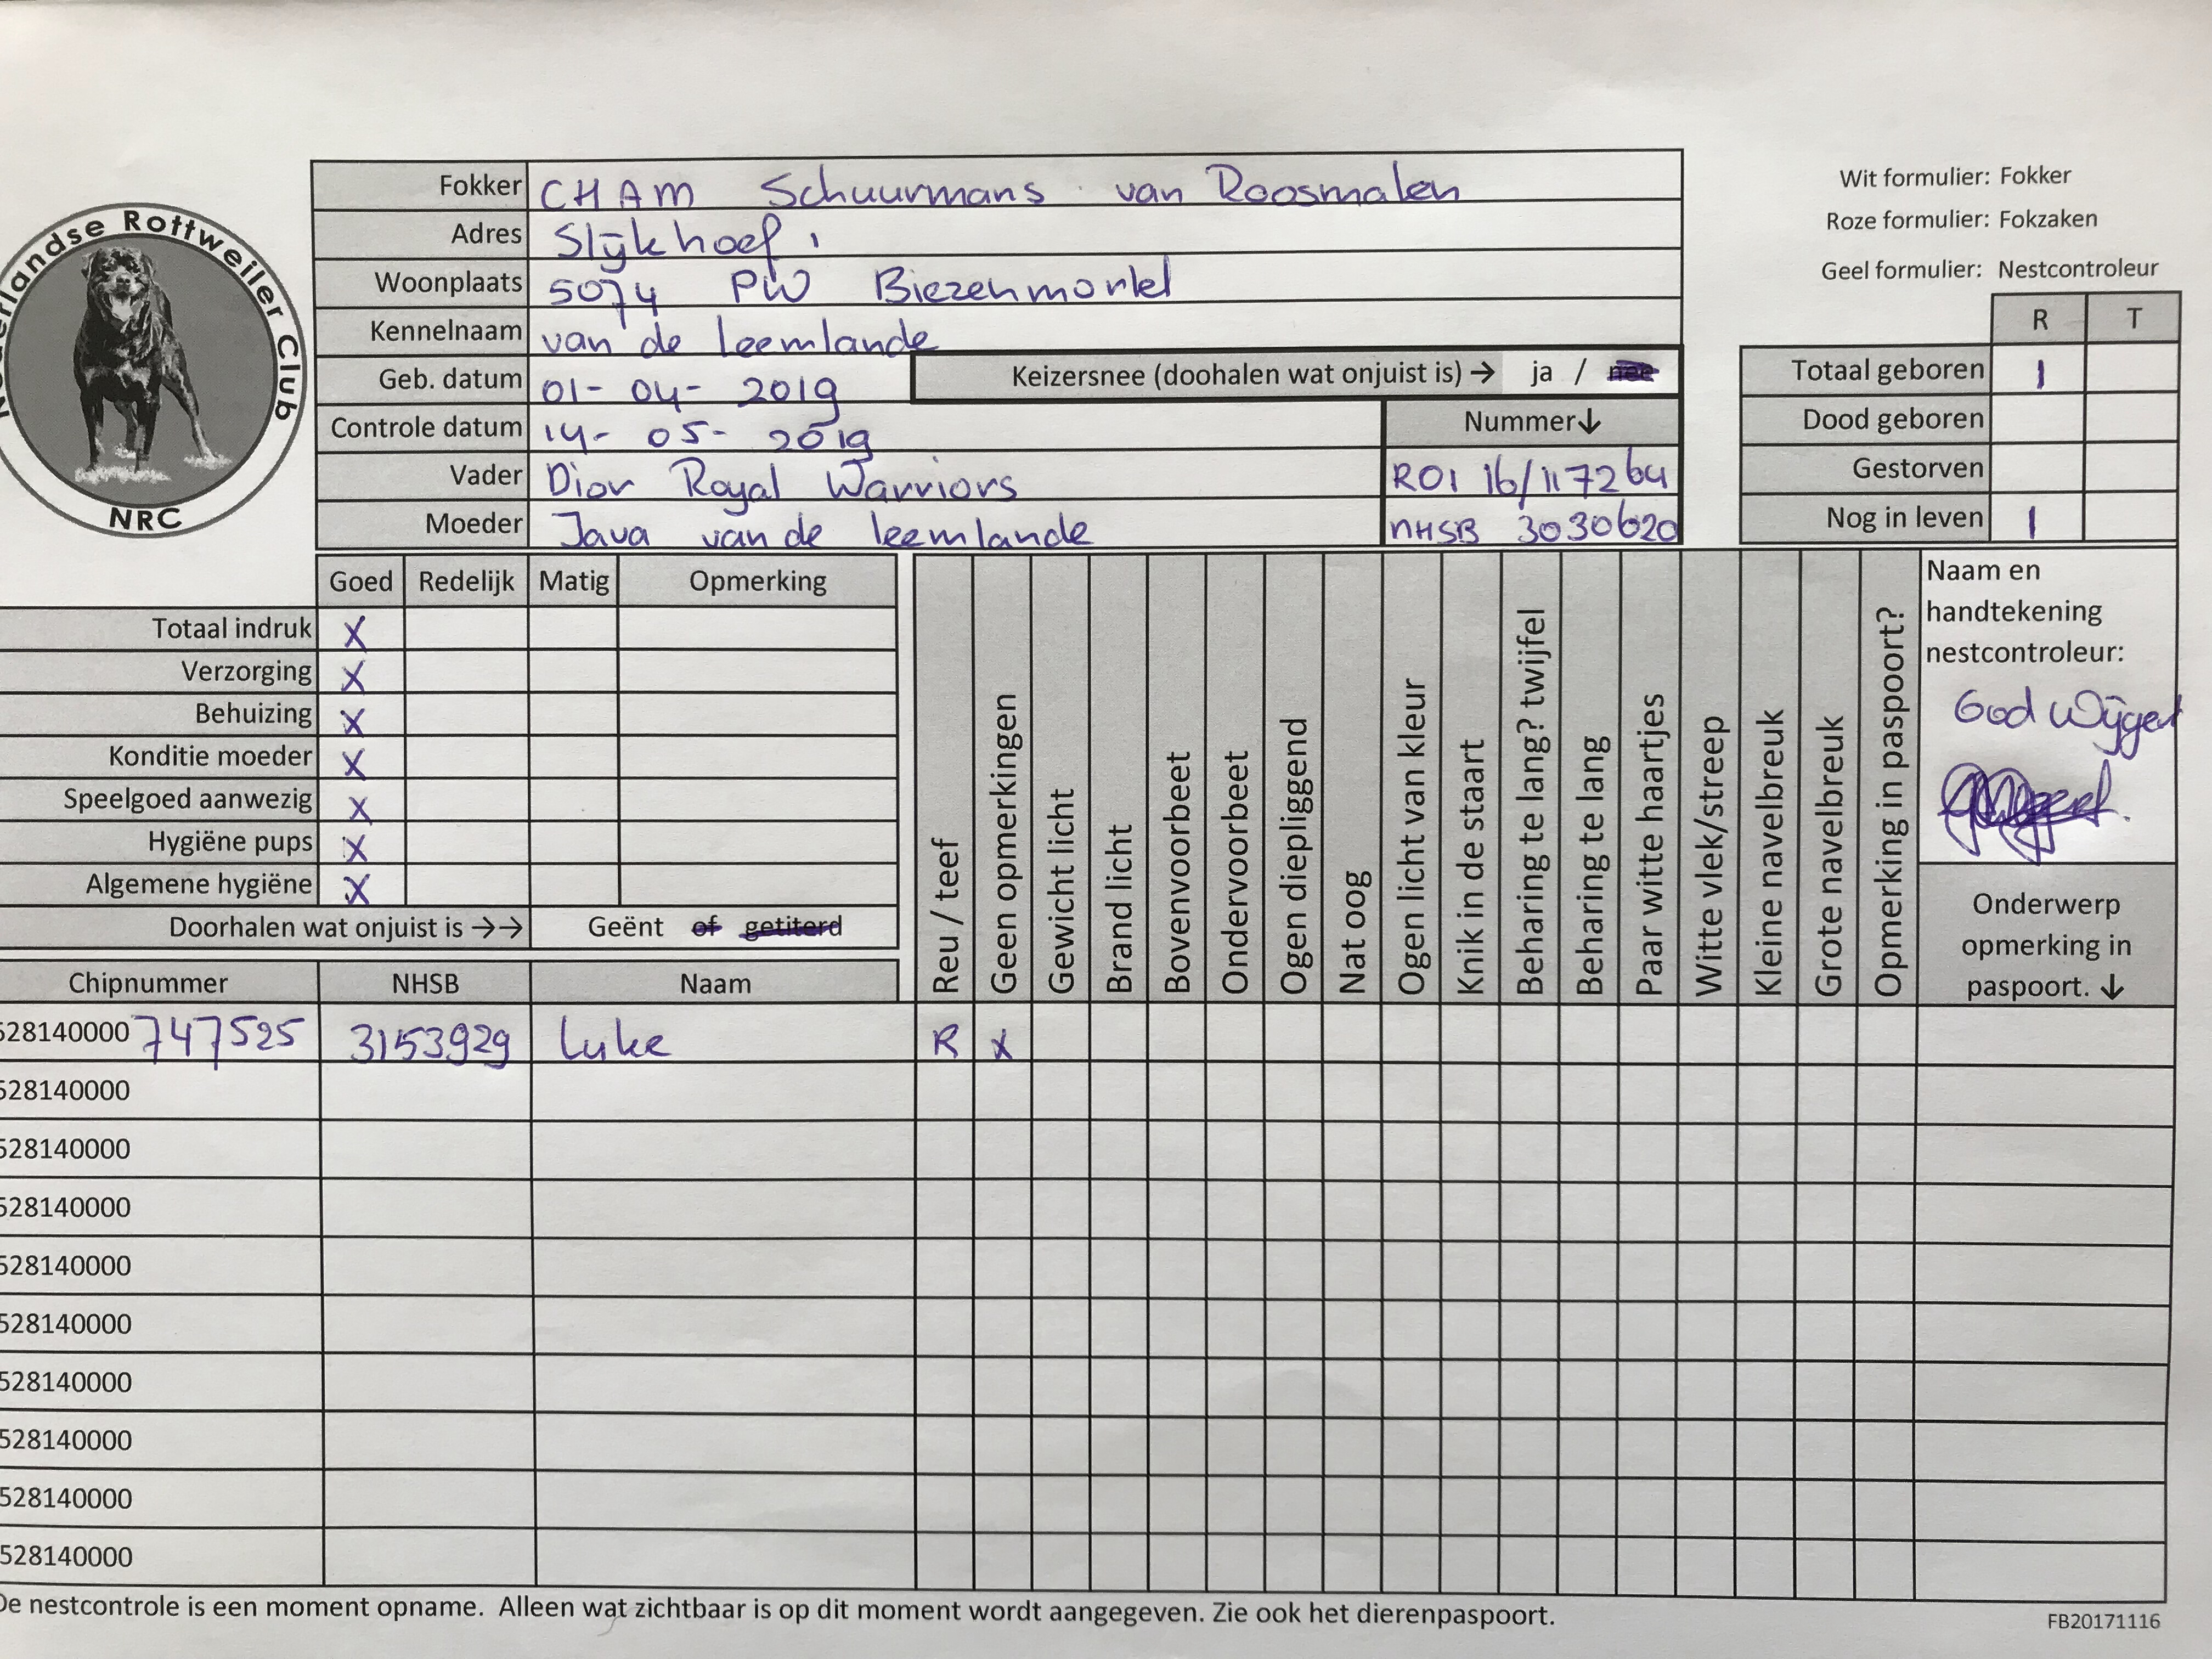 Nederlandse Rottweiler Club
NRC
Wit formulier: Fokker
Roze formulier: Fokzaken
Geel formulier: Nestcontroleur
Fokker CHAM Schuurmans van Roosmalen
Adres Slijkhoef 1
Woonplaats 5074 PW Biezenmortel
Kennelnaam van de Leemlande
Geb. datum 01-04-2019 Keizersnee (doohalen wat onjuist is) → ja / nee
Controle datum 14-05-2019 Nummer↓
Vader Dior Royal Warriors ROI 16/117264
Moeder Java van de Leemlande NHSB 3030620
R T
Totaal geboren 1
Dood geboren
Gestorven
Nog in leven 1
Goed Redelijk Matig Opmerking
Totaal indruk X
Verzorging X
Behuizing X
Konditie moeder X
Speelgoed aanwezig X
Hygiëne pups X
Algemene hygiëne X
Doorhalen wat onjuist is →→ Geënt of getiterd
Reu / teef
Geen opmerkingen
Gewicht licht
Brand licht
Bovenvoorbeet
Ondervoorbeet
Ogen diepliggend
Nat oog
Ogen licht van kleur
Knik in de staart
Beharing te lang? twijfel
Beharing te lang
Paar witte haartjes
Witte vlek/streep
Kleine navelbreuk
Grote navelbreuk
Opmerking in paspoort?
Naam en
handtekening
nestcontroleur:
Onderwerp
opmerking in
paspoort. ↓
Chipnummer NHSB Naam
528140000 747525 3153929 Luke R X
528140000
528140000
528140000
528140000
528140000
528140000
528140000
528140000
528140000
De nestcontrole is een moment opname. Alleen wat zichtbaar is op dit moment wordt aangegeven. Zie ook het dierenpaspoort.
FB20171116